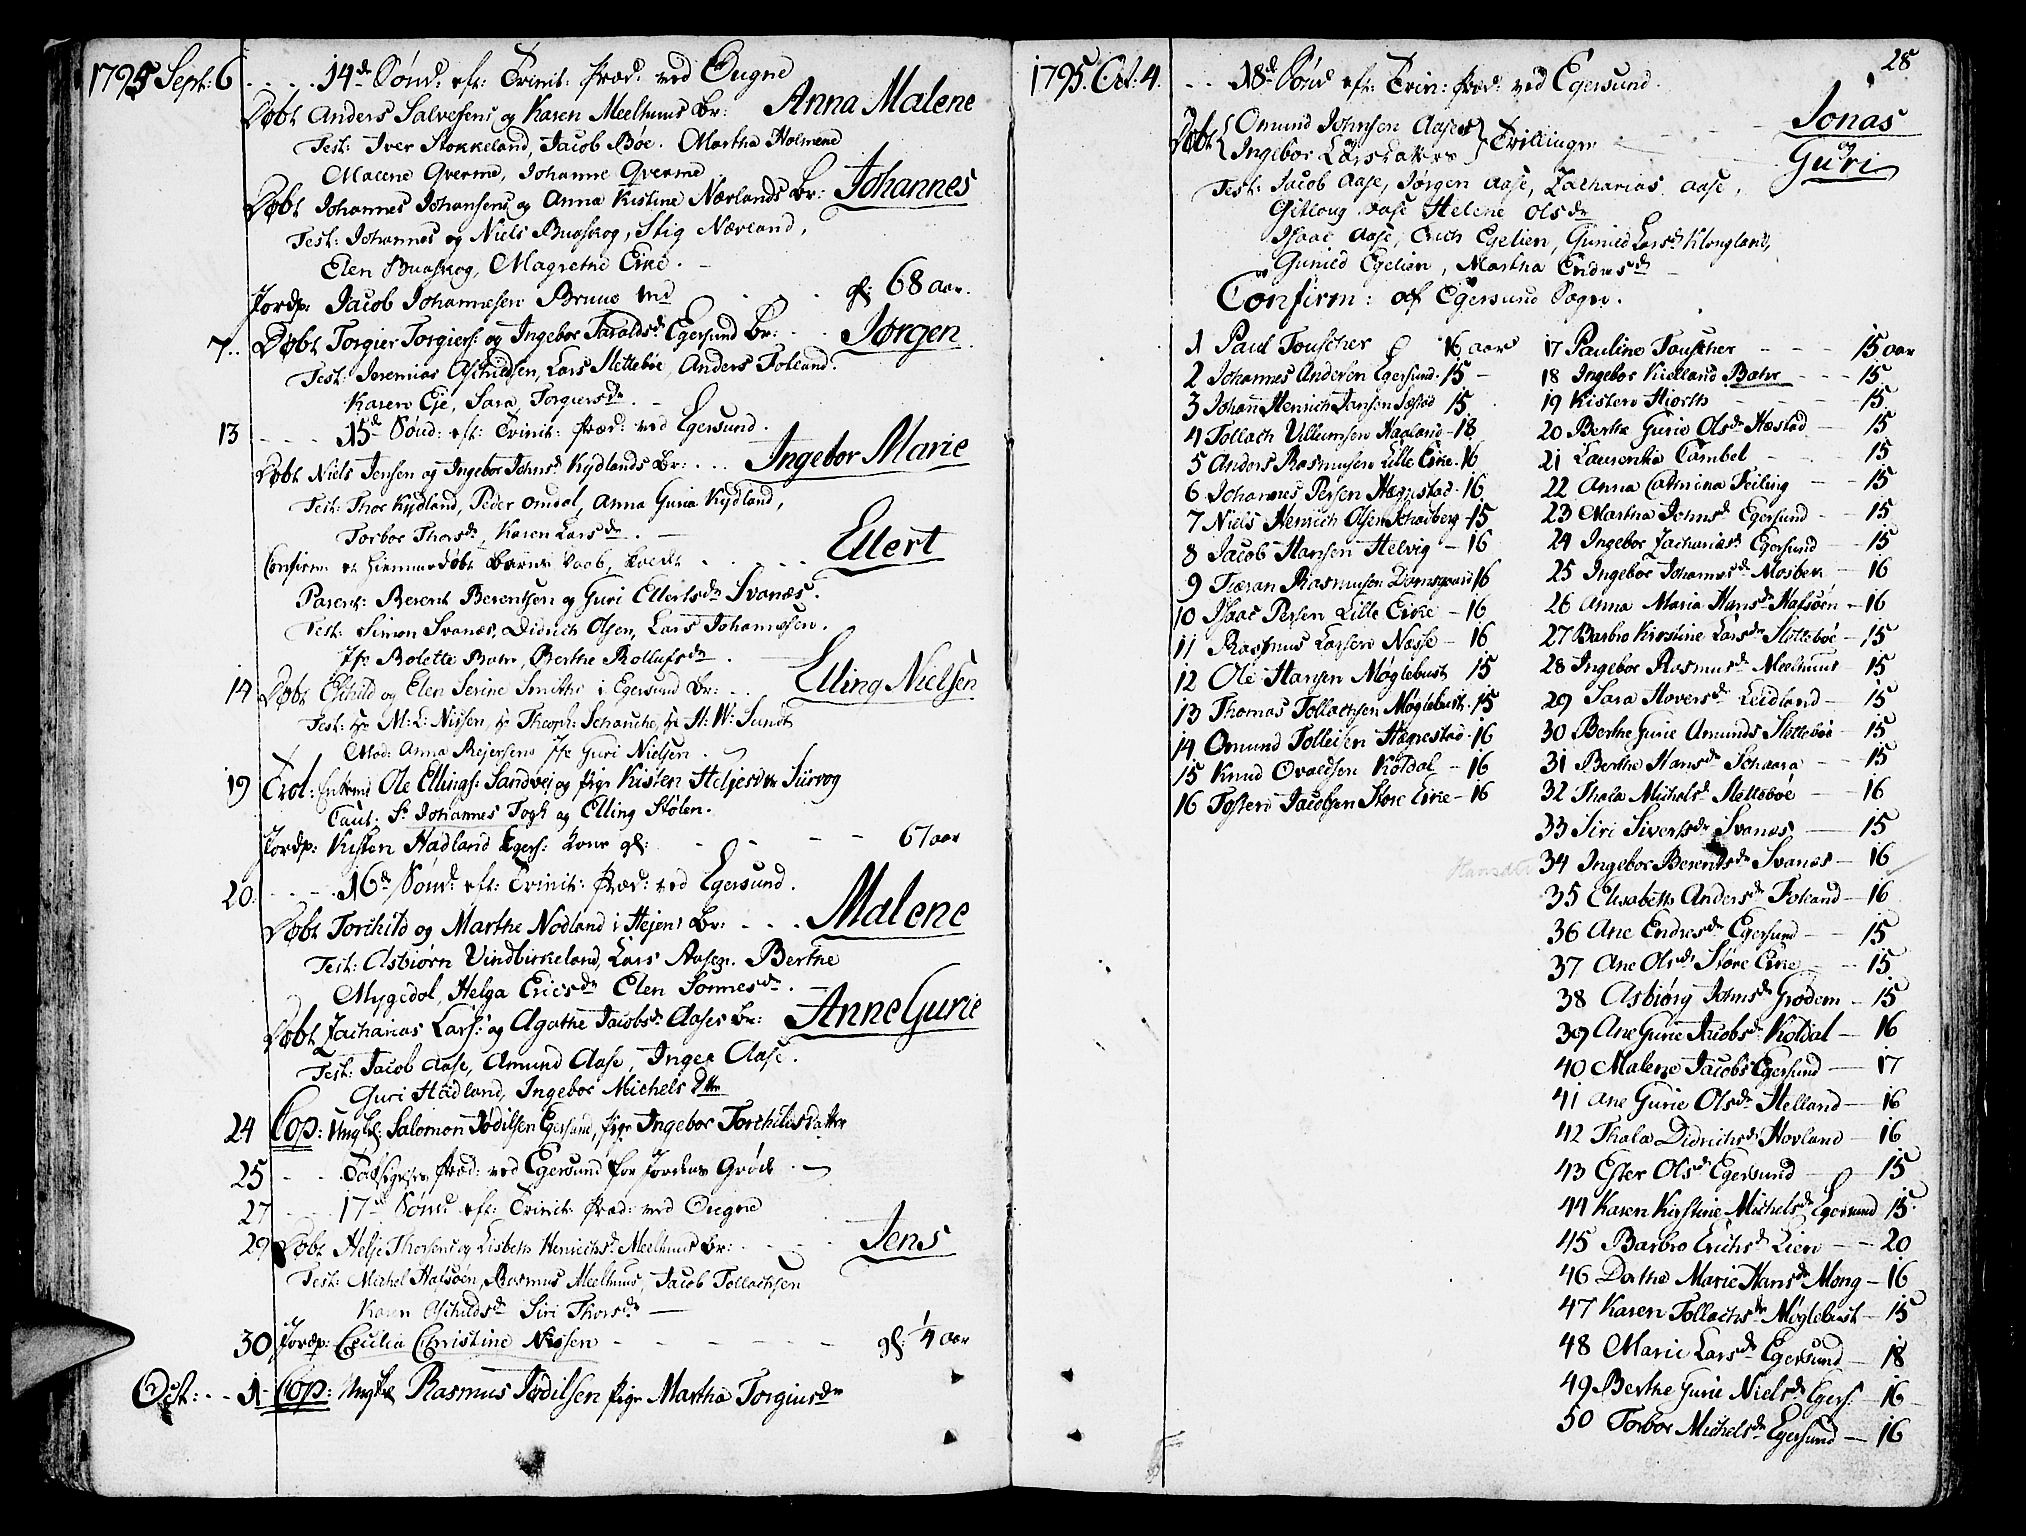 1795 Sept: 6 . . . . 14de Sønd: eft: Trinit: Præd: ved Ougne
Døbt Anders Salvesens og Karen Meelhuus Br: Anna Malene
Test: Iver Stokkeland, Jacob Bøe. Martha Holmene
Malene Qverme, Johanne Qverme
Døbt Johannes Johansens og Anna Kistine Nærlands Br: Johannes
Test: Johannes og Niels Buaskog, Stig Nærland,
Elen Buaskog, Magrethe Eike. -
Jordp: Jacob Johannesen Bruus gl: 68 aar.
7.. Døbt Torgier Torgiers: og Ingebor Taraldsd: Egersund Br: . . Jørgen
Test: Jeremias Aschildsen, Lars Slettebøe, Anders Fotland.
Karen Eje, Sara Torgiersdr. -
13 - - - - 15d Sønd: eft: Trinit: Præd: ved Egersund.
Døbt Niels Jensen og Ingebor Johnsd: Kydlands Br: . . . Ingebor Marie
Test: Thor Kydland, Peder Omdal, Anna Guria Kydland,
Torbor Thorsdr, Karen Larsdr. -
Confirm: et hiemmedøbt Barns Daab, kaldt . . . . . Ellert
Parent: Berent Berentsen og Guri Ellertsdr Svanæs.
Test: Simon Svanæs, Didrich Olsen, Lars Johannesen.
Jfr Bolette Bahr, Berthe Rollufsdr.
14 Døbt Eschild og Elen Serine Smiths i Egersund Br: . . . Elling Nielsen
Test: Hr M: L: Nissen, Hr Theoph: Schanche, Hr H: W: Sundt
Mad: Anna Rejersens Jfr Guri Nielsen.
19 Trol: Enkemd Ole Ellings: Sandvej og Pige Kisten Heljesdr Siirvog
Caut: Sr Johannes Fogh og Elling Stølen.
Jordp: Kisten Hadland Egers: Kone gl: - - - - 67 aar
20: . . - - 16de Sønd: eft: Trinit: Præd: ved Egersund.
Døbt Torchild og Marthe Nodland i Hejens Br: . . . Malene
Test: Asbiørn Vindbirkeland, Lars Aasen. Berthe
Mygedal, Helga Ericsdr Elen Sonnesdr.
Døbt Zacharias Lars: og Agathe Jacobsd: Aases Br: Anne Gurie
Test: Jacob Aase, Amund Aase, Inger Aase.
Guri Hadland, Ingebor Michels Dttr
24 Cop: Ungkl: Salomon Jødilsen Egersund, Pige Ingebor Torchildsdatter
25 - - - Præd: ved Egersund for Jordens Grøde . -
27 - - - 17de Sønd: eft: Trinit: Præd: ved Ougne
29 Døbt Helje Thorsens og Lisbeth Henrichsd: Meelhuus Br: - . - . Jens
Test: Michel Hafsøen, Rasmus Meelhuus, Jacob Tollachsen
Karen Aschildsdr Siri Thorsdr -
30 Jordp: Cecilia Christine Nissen - - - - - gl: 1/4 aar
Oct: . . - 1 Cop: Ungkl Rasmus Jødilsen Pige Martha Torgiusdr
28
1795. Oct: 4. . . 18de Sønd eft: Trin: Præd: ved Egersund.
Døbt Omund Johnsen Aases Jonas
og Tvillinger og
Ingebor Lars Guri
Test: Jacob Aase, Jørgen Aase, Zacharias Aase,
Gitloug Aase Helene Olsdr
Isaac Aase, Erich Egelien, Gunild Larsd: Klongland,
Gunild Egelien, Martha Endresdr -
Confirm: af Egersund Sogn.
1 Paul Touscher 16 aar
2 Johannes Andersen Egersund. 15 -
3 Johan Henrich Jansen 15
4 Tollach Villumsen Haaland - 18
5 Anders Rasmusen Lille Eike. 16
6 Johannes Persen Hægrestad. 16
7 Niels Henrich Olsen Schadberg - 15
8 Jacob Hansen Helvig - 16
9 Tiæran Rasmusen Damsgaard 16
10 Isaac Persen Lille Eike - 16
11 Rasmus Larsen Næsse - 16
12 Ole Hansen Møglebust 15
13 Thomas Tollachsen Møglebust. 15
14 Omund Tolleisen Hægrestad - 16
15 Knud Ovaldsen Koldal - 16
16 Tosten Jacobsen Store Eike - 16
17 Pauline Touscher - - - 15 aar
18 Ingebor Kielland Bahr - - - 15
19 Kisten Hiorth - - - 15
20 Berthe Gurie Olsdr Hæstad - 15
21 Laurentia Cambel - - 15
22 Anna Catrina Feiling - - 15
23 Martha Johnsd: Egersund - 15
24 Ingebor Zachariasd: Egersund - 15
25 Ingebor Johannesd: Mosbek - 16
26 Anna Maria Hansdr Hafsøen - 16
27 Barbro Kirstine Larsdr Slettebøe - 15
28 Ingebor Rasmusd: Meelhuus - 15
29 Sara Hoversdr Leidland - 15
30 Berthe Gurie Amunds Slettebøe - 15
31 Berthe Hansdr Schaara - - 15
32 Thala Michelsd: Slettebøe - 16
33 Siri Sivertsdr Svanæs - 15
34 Ingebor Berentsdr Svanæs - 16
35 Elisabeth Andersdr Fotland - 16
36 Ane Endresdr Egersund - 15
37 Ane Olsdr Store Eike - - 15
38 Asbiørg Johnsdr Grødem - 15
39 Ane Gurie Jacobsdr Koldal - 16
40 Malene Jacobs Egersund - 17
41 Ane Gurie Olsdr Helland - 16
42 Thala Didrichsd: Hovland - 16
43 Ester Olsdr Egersund - 15
44 Karen Kirstine Michelsdr Egersund 15.
45 Barbro Erichsdr Lien - - 20
46 Dorthe Marie Hansdr Mong - 16
47 Karen Tollachsdr Møglebust - 15
48 Marie Larsdr Egersund - 18
49 Berthe Gurie Nielsdr Egers: - 16
50 Torbor Michelsdr Egersund - 16